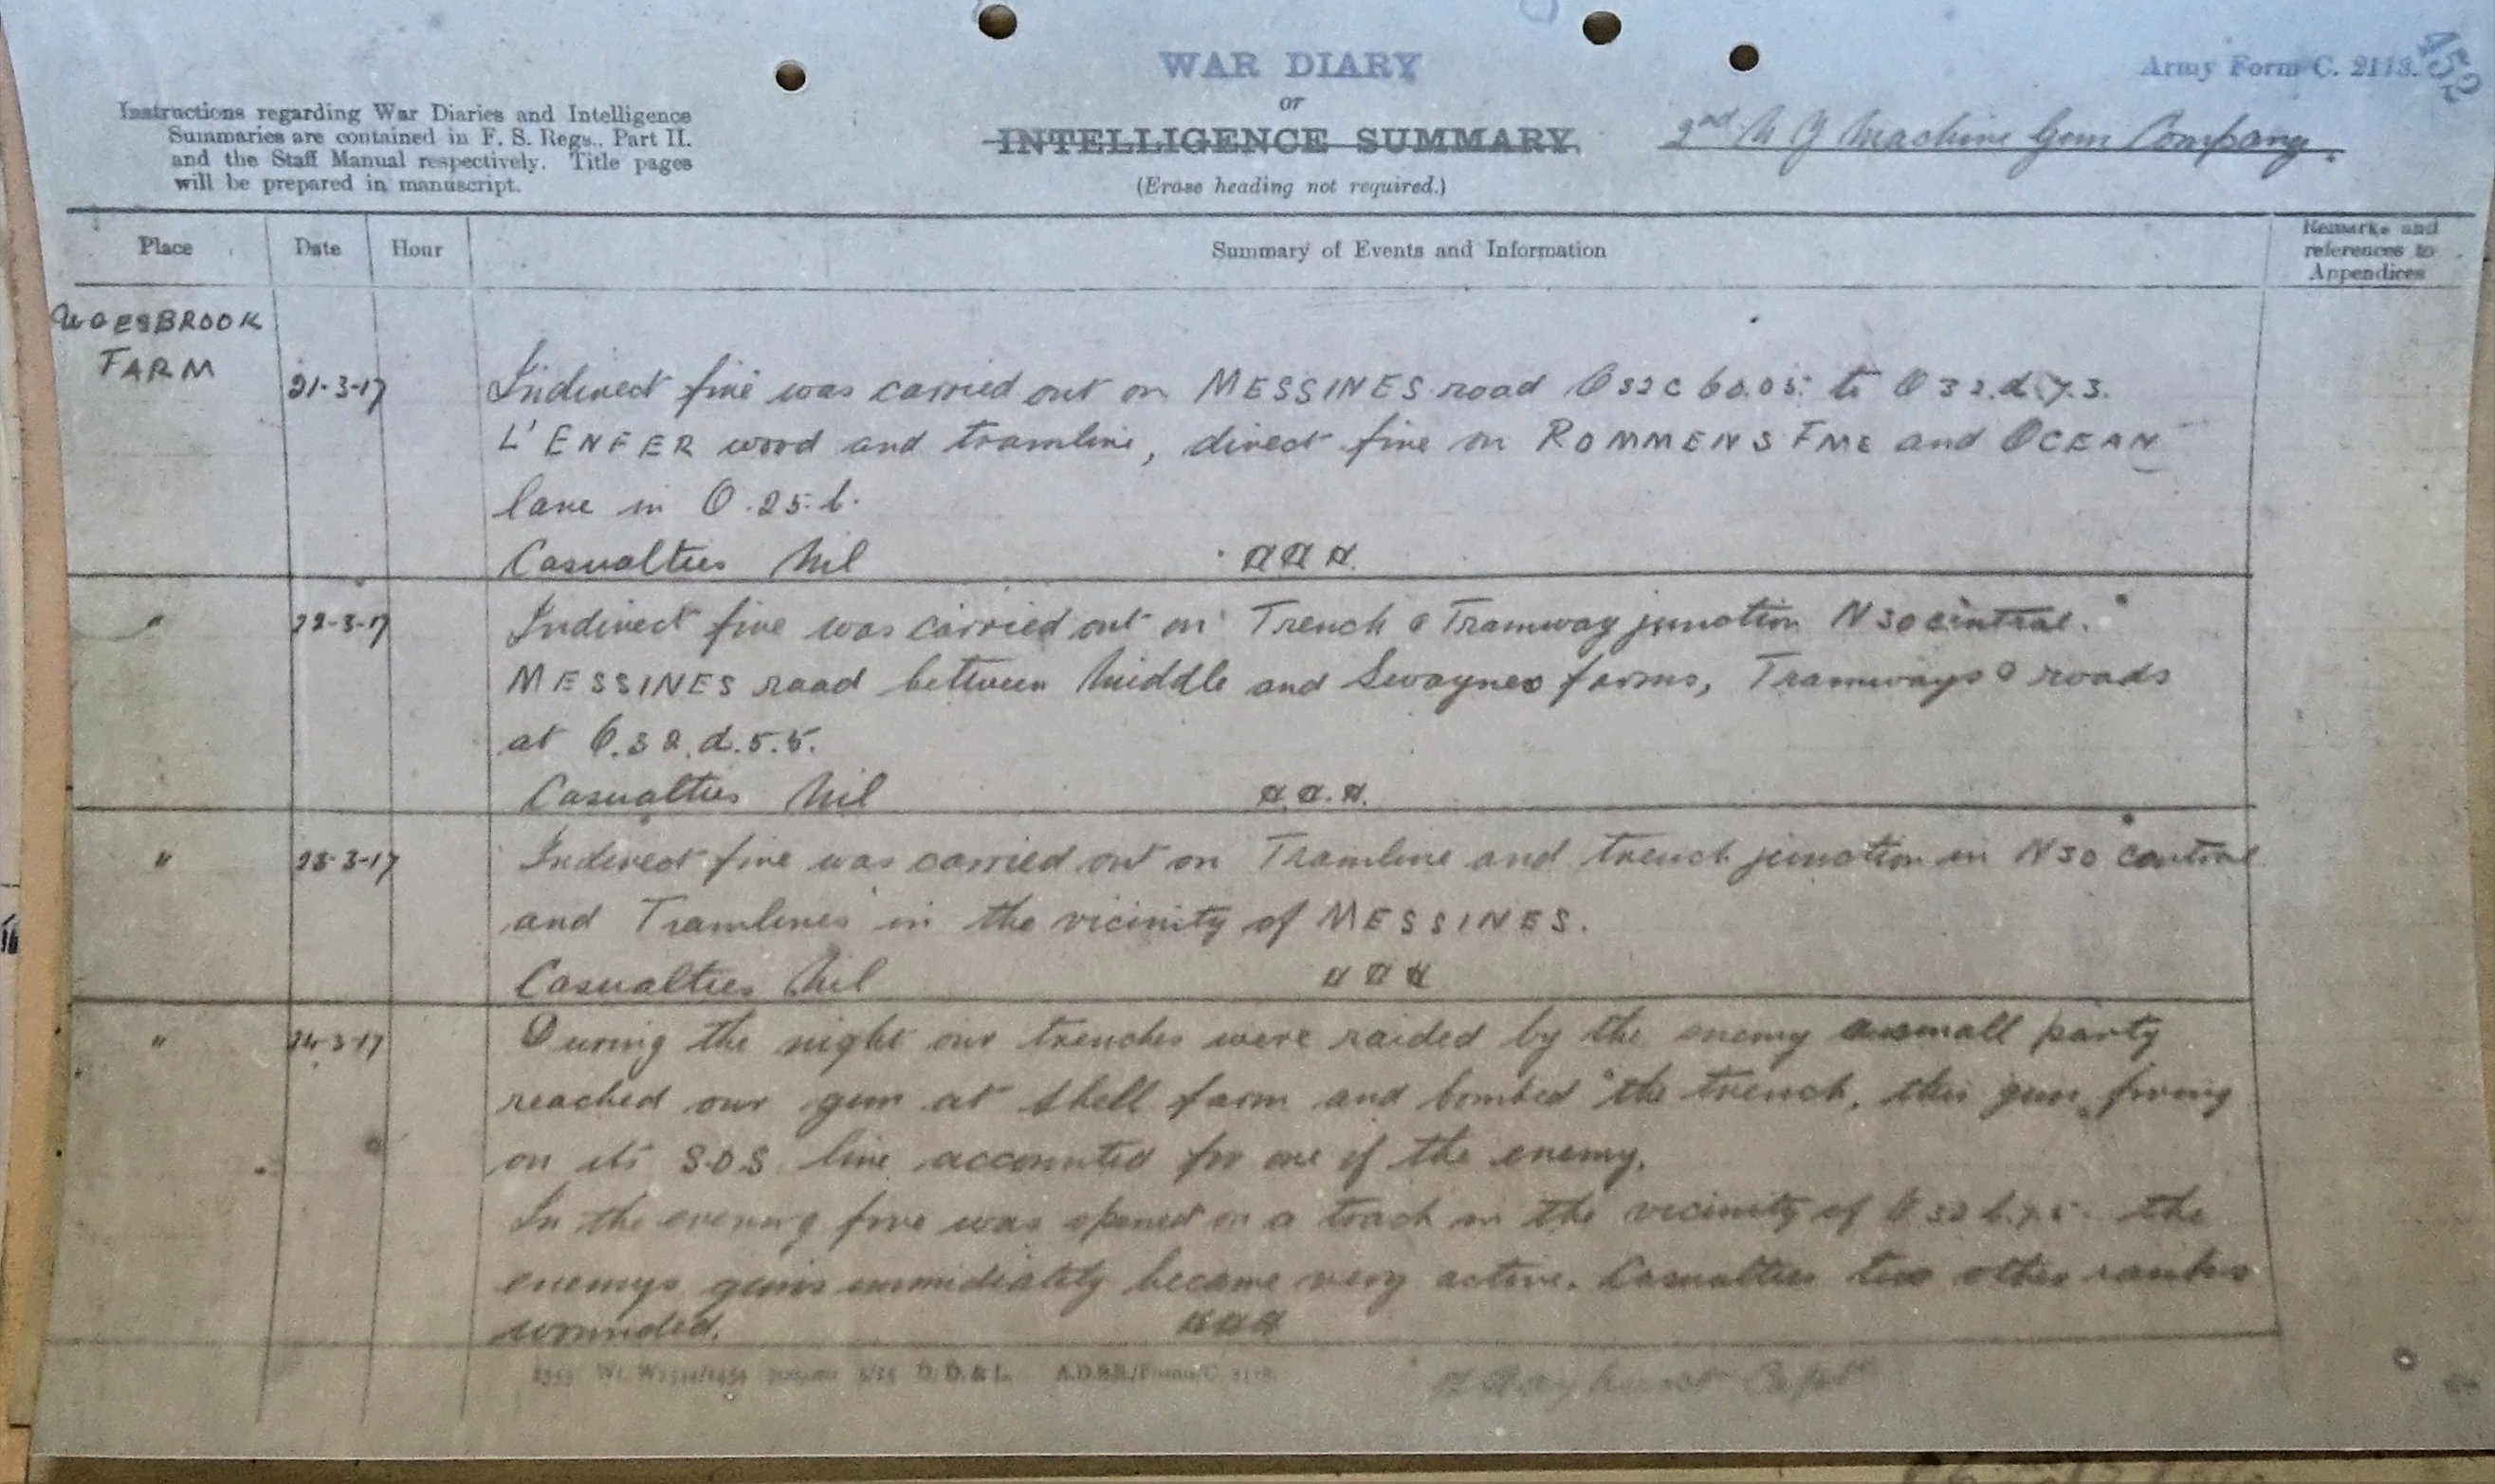 WAR DIARY
or
INTELLIGENCE SUMMARY
(Erase heading not required.)
Army Form C. 2118.
452
Instructions regarding War Diaries and Intelligence
Summaries are contained in F. S. Regs., Part II.
and the Staff Manual respectively. Title pages
will be prepared in manuscript.
2nd N Z Machine Gun Company.
Place Date Hour Summary of Events and Information Remarks and references to Appendices
FARM
21-3-17 Indirect fire was carried out on MESSINES road O32c 60.05. to O 32.d.7.3.
L'ENFER wood and tramline, direct fire on ROMMENS FME and OCEAN
lane in O.25.b.
Casualties Nil
" 22-3-17 Indirect fire was carried out on Trench & Tramway junction N30central.
MESSINES road between Middle and Swaynes farms, Tramways & roads
at O.32.d.5.5.
Casualties Nil
" 23-3-17 Indirect fire was carried out on Tramline and trench junction in N30 central
and Tramlines in the vicinity of MESSINES.
Casualties Nil
" 24-3-17 During the night our trenches were raided by the enemy a small party
reached our gun at Shell farm and bombed the trench, this gun firing
on its S.O.S line accounted for one of the enemy.
In the evening fire was opened on a track in the vicinity of O 32 b.7.5. the
enemys guns immediately became very active. Casualties two other ranks
wounded.
D. D. & L.
Capt